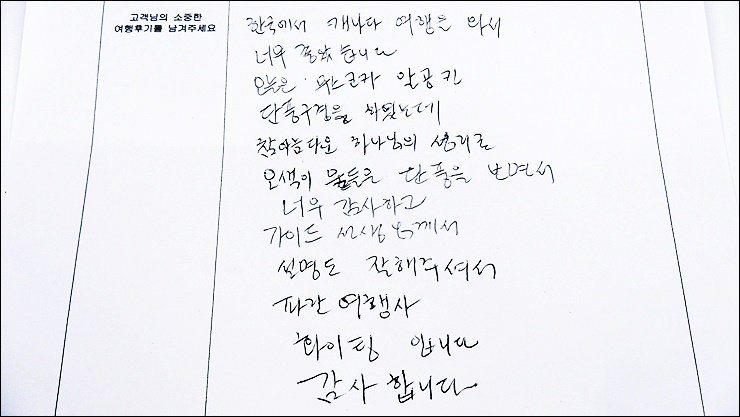 고객님의 소중한
여행후기를 남겨주세요
한국에서 캐나다 여행을 와서
너무 좋았습니다
오늘은 무스코카 알공킨
단풍구경을 하였는데
참 아름다운 하나님의 섭리로
오색이 물들은 단풍을 보면서
너무 감사하고
가이드 선생님께서
설명도 잘해주셔서
파란여행사
화이팅 입니다
감사합니다